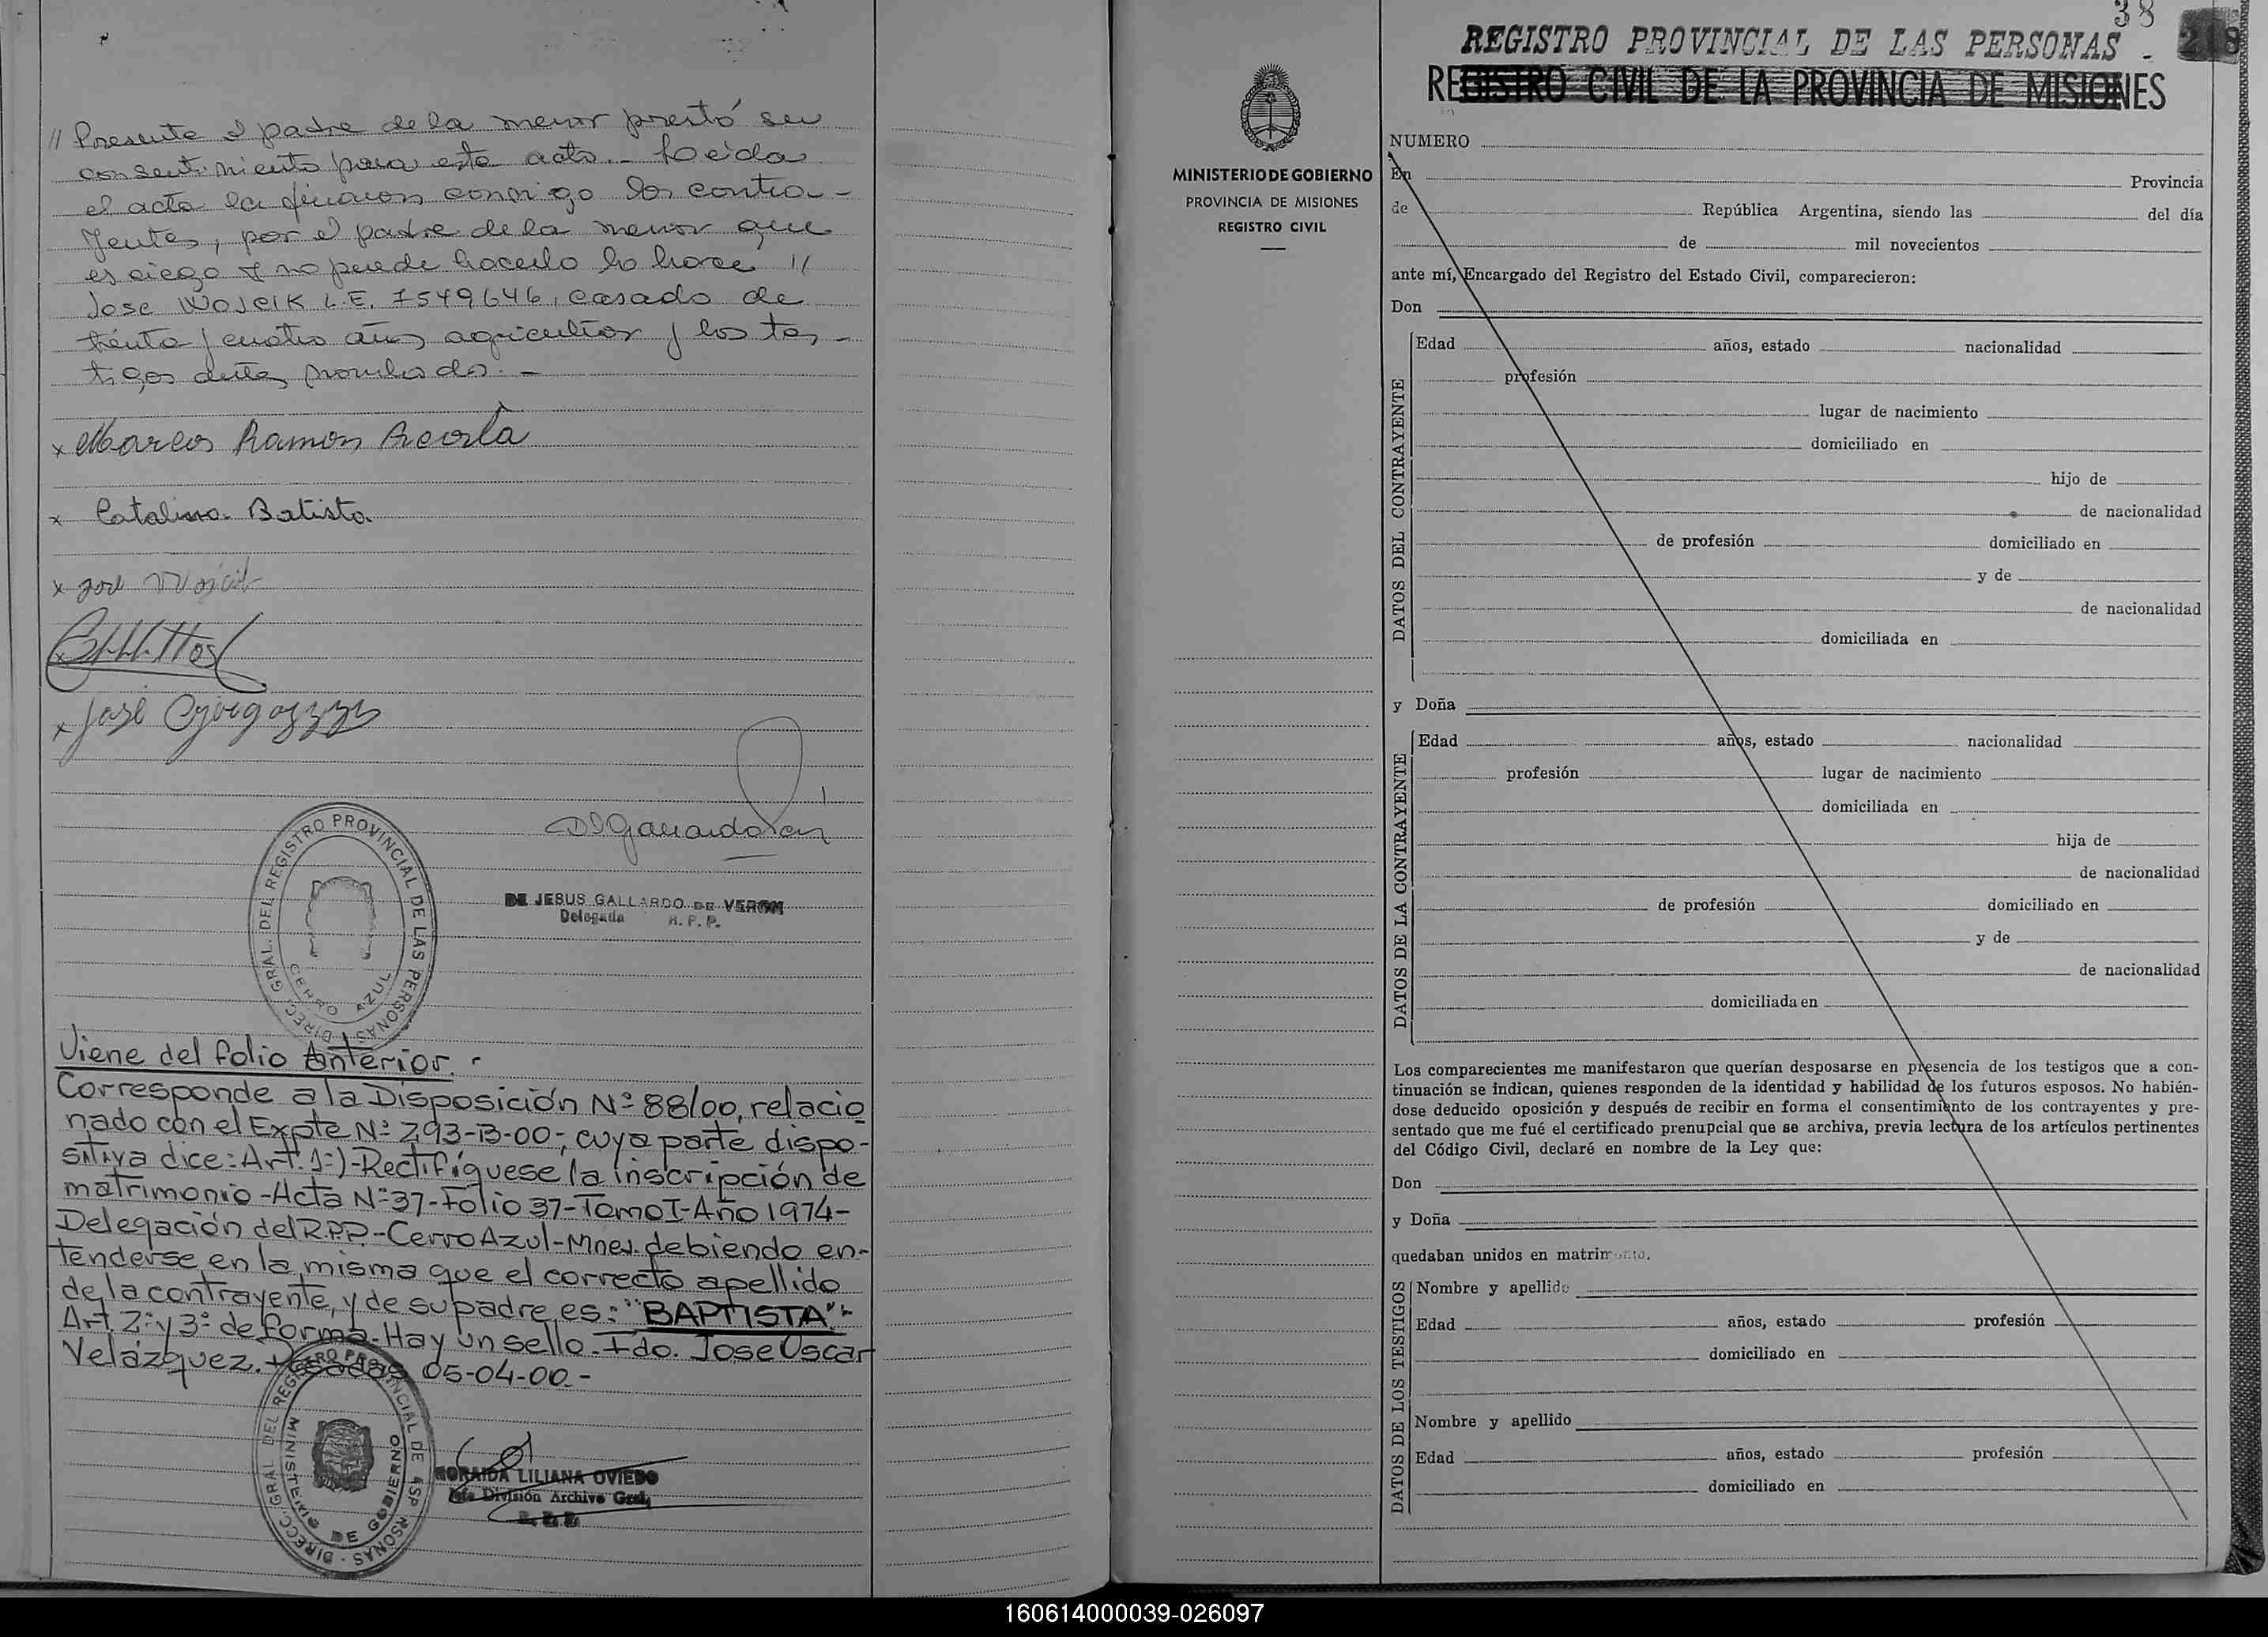 // Presente el padre de la menor prestó su
consentimiento para este acto.- Leida
el acta la firmaron conmigo los contra-
yentes, por el padre de la menor que
es ciego y no puede hacerlo lo hace //
Jose WOJCIK L.E. 7549646, casado de
treinta y cuatro años agricultor y los tes-
tigos antes nombrados.-
x Marcos Ramon Acosta
x Catalina Batista
x José Wojcik
x José
DE JESUS GALLARDO DE VERON
Delegada R. P. P.
DIREC. GRAL. DEL REGISTRO PROVINCIAL DE LAS PERSONAS
CERRO AZUL
Viene del folio Anterior.-
Corresponde a la Disposición Nº 88/00, relacio
nado con el Expte Nº 293-B-00-, cuya parte dispo-
sitiva dice: Art. 1º)-Rectifíquese la inscripción de
matrimonio-Acta Nº 37-Folio 37-Tomo I-Año 1974-
Delegación del R.P.P.-Cerro Azul-Mnes. debiendo en-
tenderse en la misma que el correcto apellido
de la contrayente, y de su padre es: "BAPTISTA".-
Art. 2º y 3º de forma-Hay un sello.-Fdo. Jose Oscar
Velázquez. Posadas 05-04-00.-
DIRECC. GRAL. DEL REGISTRO PROVINCIAL DE LAS PERSONAS
MINISTERIO DE GOBIERNO
ZORAIDA LILIANA OVIEDO
Jefe División Archivo Gral.
R. P. P.
38
REGISTRO PROVINCIAL DE LAS PERSONAS -
REGISTRO CIVIL DE LA PROVINCIA DE MISIONES
MINISTERIO DE GOBIERNO
PROVINCIA DE MISIONES
REGISTRO CIVIL
NUMERO
En Provincia
de República Argentina, siendo las del día
de mil novecientos
ante mí, Encargado del Registro del Estado Civil, comparecieron:
Don
DATOS DEL CONTRAYENTE
Edad años, estado nacionalidad
profesión
lugar de nacimiento
domiciliado en
hijo de
de nacionalidad
de profesión domiciliado en
y de
de nacionalidad
domiciliada en
y Doña
DATOS DE LA CONTRAYENTE
Edad años, estado nacionalidad
profesión lugar de nacimiento
domiciliada en
hija de
de nacionalidad
de profesión domiciliado en
y de
de nacionalidad
domiciliada en
Los comparecientes me manifestaron que querían desposarse en presencia de los testigos que a con-
tinuación se indican, quienes responden de la identidad y habilidad de los futuros esposos. No habién-
dose deducido oposición y después de recibir en forma el consentimiento de los contrayentes y pre-
sentado que me fué el certificado prenupcial que se archiva, previa lectura de los artículos pertinentes
del Código Civil, declaré en nombre de la Ley que:
Don
y Doña
quedaban unidos en matrimonio.
DATOS DE LOS TESTIGOS
Nombre y apellido
Edad años, estado profesión
domiciliado en
Nombre y apellido
Edad años, estado profesión
domiciliado en
160614000039-026097